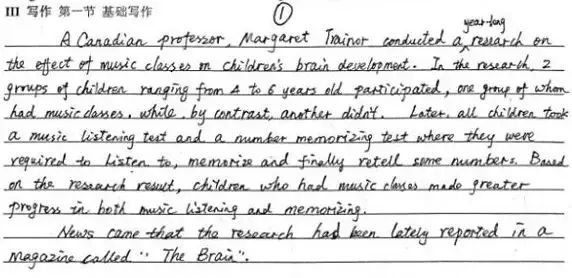 III 写作 第一节 基础写作 ①
A Canadian professor, Margaret Trainor conducted a year-long research on
the effect of music classes on children's brain development. In the research, 2
groups of children ranging from 4 to 6 years old participated, one group of whom
had music classes, while, by contrast, another didn't. Later, all children took
a music listening test and a number memorizing test where they were
required to listen to, memorize and finally retell some numbers. Based
on the research result, children who had music classes made greater
progress in both music listening and memorizing.
News came that the research had been lately reported in a
magazine called " The Brain".